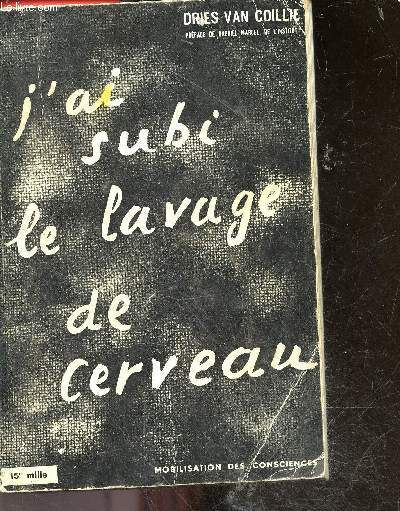 DRIES VAN COILLIE
PRÉFACE DE GABRIEL MARCEL DE L'INSTITUT
j'ai
subi
le lavage
de
cerveau
15e mille
MOBILISATION DES CONSCIENCES